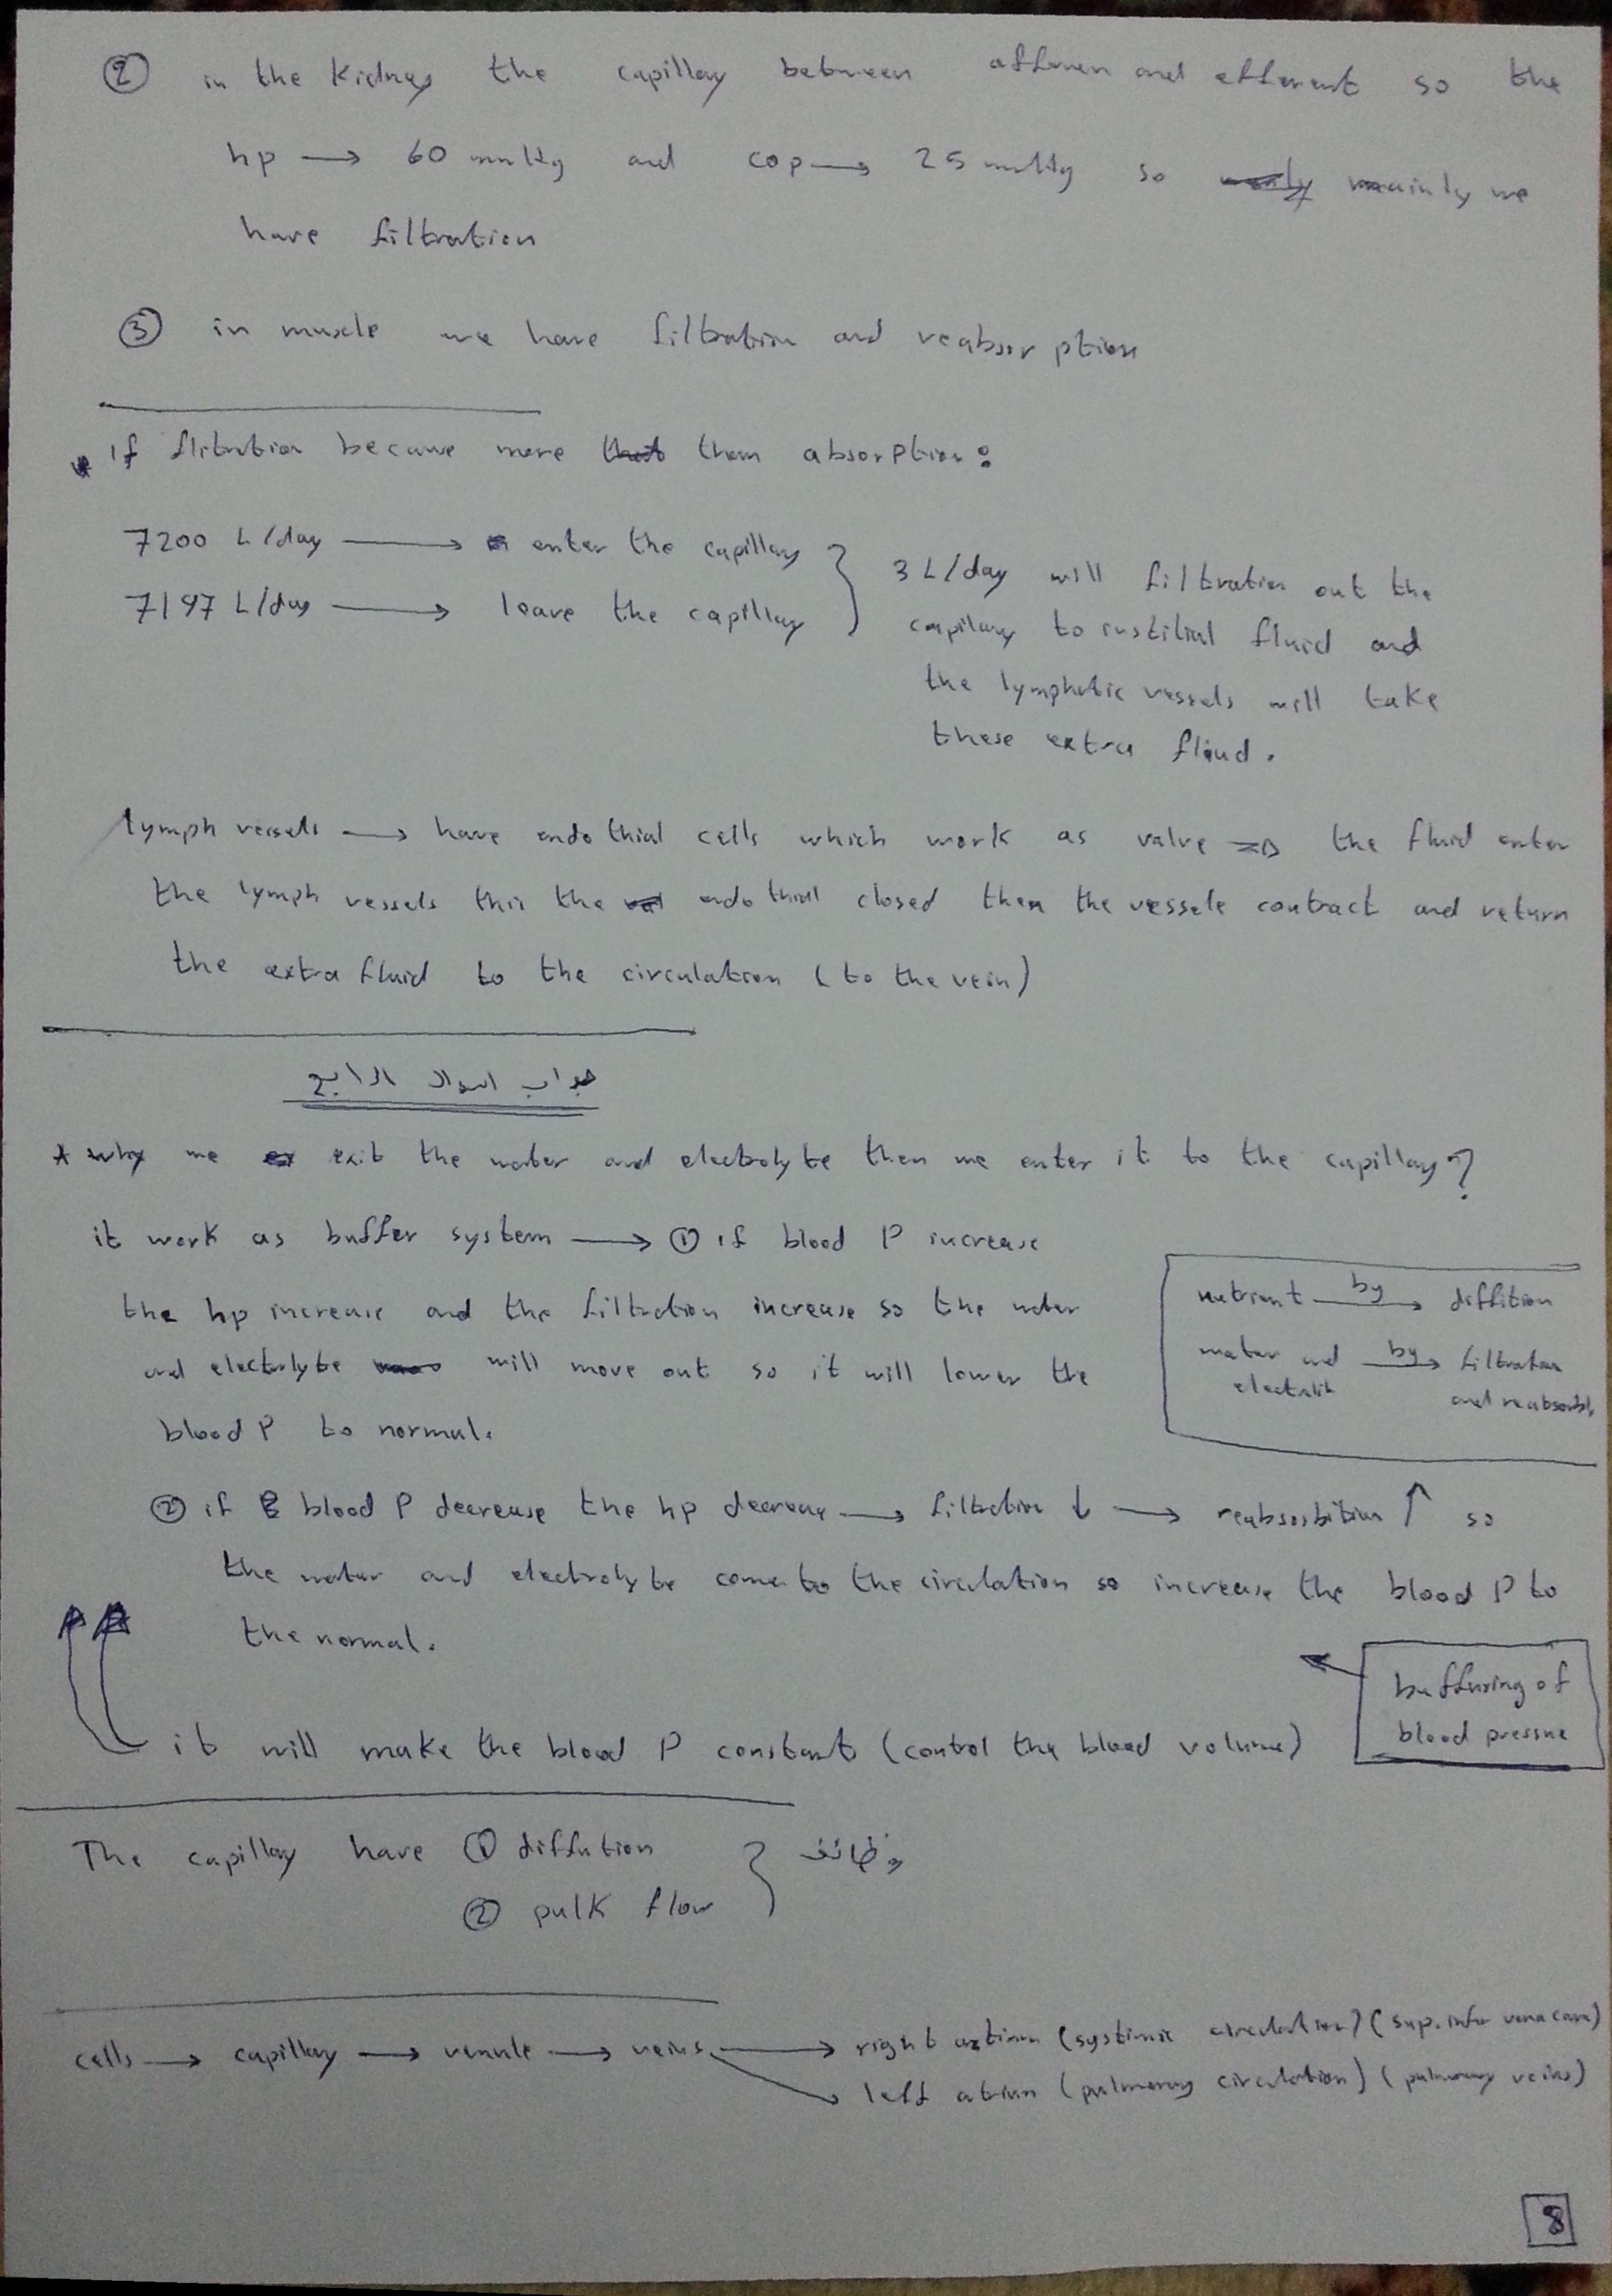 ② in the Kidney the capillary between afferen and efferent so the
hp → 60 mmHg and cop → 25 mmHg so mainly we
have filtration
③ in muscle we have filtration and reabsorption
* if flitration became more than absorption:
7200 L/day → enter the capillary
7197 L/day → leave the capillary
3 L/day will filtration out the
capilary to institial fluid and
the lymphatic vessels will take
these extra fliud.
lymph vessels → have endothial cells which work as valve ⇒ the fluid enter
the lymph vessels thin the endothial closed then the vessele contract and return
the extra fluid to the circulation (to the vein)
جواب السؤال الرابع
* why we exit the water and electrolyte then we enter it to the capillary?
it work as buffer system → ① if blood P increase
the hp increase and the filtration increase so the water
and electrolyte will move out so it will lower the
blood P to normal.
nutrient by→ diffition
water and by→ filtration
electrolit and reabsorbti
② if blood P decrease the hp decrease → filtration ↓ → reabsosbition ↑ so
the water and electrolyte come to the circulation so increase the blood P to
the normal.
buffering of
blood pressue
it will make the blood P constant (control the blood volume)
The capillary have ① diffution
② pulk flow
وظائف
cells → capillary → venule → veins → right atrium (systimic circulation) (sup. infer vena cava)
→ left atrium (pulmonary circulation) (pulmonary veins)
8